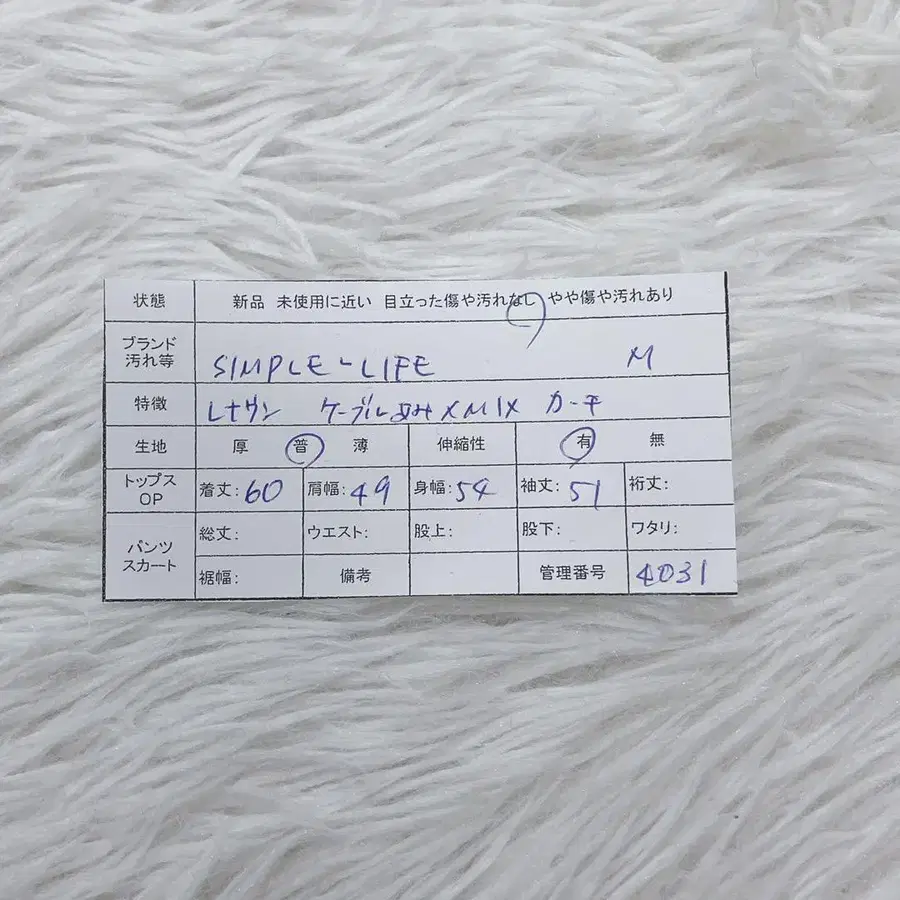 状態 新品 未使用に近い 目立った傷や汚れなし やや傷や汚れあり
ブランド 汚れ等 SIMPLE-LIFE M
特徴 ケーブルあみ×MIX カーデ
生地 厚 普 薄 伸縮性 有 無
トップス OP 着丈:60 肩幅:49 身幅:54 袖丈:51 裄丈:
パンツ スカート 総丈: ウエスト: 股上: 股下: ワタリ:
裾幅: 備考 管理番号 4031